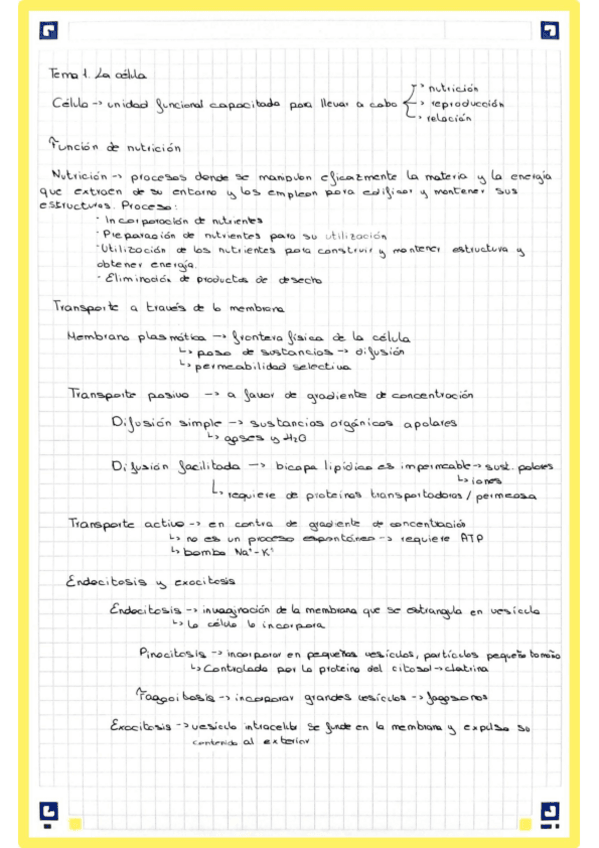 Tema 1. La célula
Célula -> unidad funcional capacitada para llevar a cabo -> nutrición
-> reproducción
-> relación
Función de nutrición
Nutrición -> procesos donde se manipulan eficazmente la materia y la energía
que extraen de su entorno y los emplean para edificar y mantener sus
estructuras. Proceso:
· Incorporación de nutrientes
· Preparación de nutrientes para su utilización
· Utilización de los nutrientes para construir y mantener estructura y
obtener energía.
· Eliminación de productos de desecho
Transporte a través de la membrana
Membrana plasmática -> frontera física de la célula
↳ paso de sustancias -> difusión
↳ permeabilidad selectiva
Transporte pasivo -> a favor de gradiente de concentración
Difusión simple -> sustancias orgánicas apolares
↳ gases y H2O
Difusión facilitada -> bicapa lipídica es impermeable -> sust. polares
↳ iones
↳ requiere de proteínas transportadoras / permeasa
Transporte activo -> en contra de gradiente de concentración
↳ no es un proceso espontáneo -> requiere ATP
↳ bomba Na+-K+
Endocitosis y exocitosis
Endocitosis -> invaginación de la membrana que se estrangula en vesícula
↳ la célula lo incorpora
Pinocitosis -> incorporar en pequeñas vesículas, partículas pequeño tamaño
↳ Controlado por la proteína del citosol -> clatrina
Fagocitosis -> incorporar grandes vesículas -> fagosomas
Exocitosis -> vesícula intracelular se funde en la membrana y expulsa su
contenido al exterior